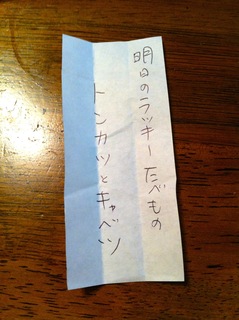 明日のラッキーたべもの
トンカツとキャベツ